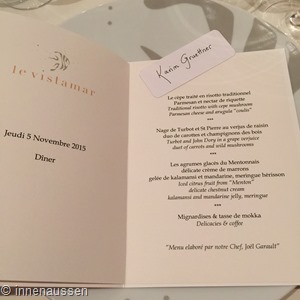 le vistamar
Jeudi 5 Novembre 2015
Dîner
Karin Gruettner
Le cepe traité en risotto traditionnel
Parmesan et nectar de riquette
Traditional risotto with cepe mushroom
Parmesan cheese and arugula "coulis"
***
Nage de Turbot et St Pierre au verjus de raisin
duo de carottes et champignons des bois
Turbot and John Dory in a grape verjuice
duet of carrots and wild mushrooms
***
Les agrumes glacés du Mentonnais
délicate crème de marrons
gelée de kalamansi et mandarine, meringue hérisson
Iced citrus fruit from "Menton"
delicate chestnut cream
kalamansi and mandarine jelly, meringue
***
Mignardises & tasse de mokka
Delicacies & coffee
"Menu élaboré par notre Chef, Joël Garault"
© innenaussen